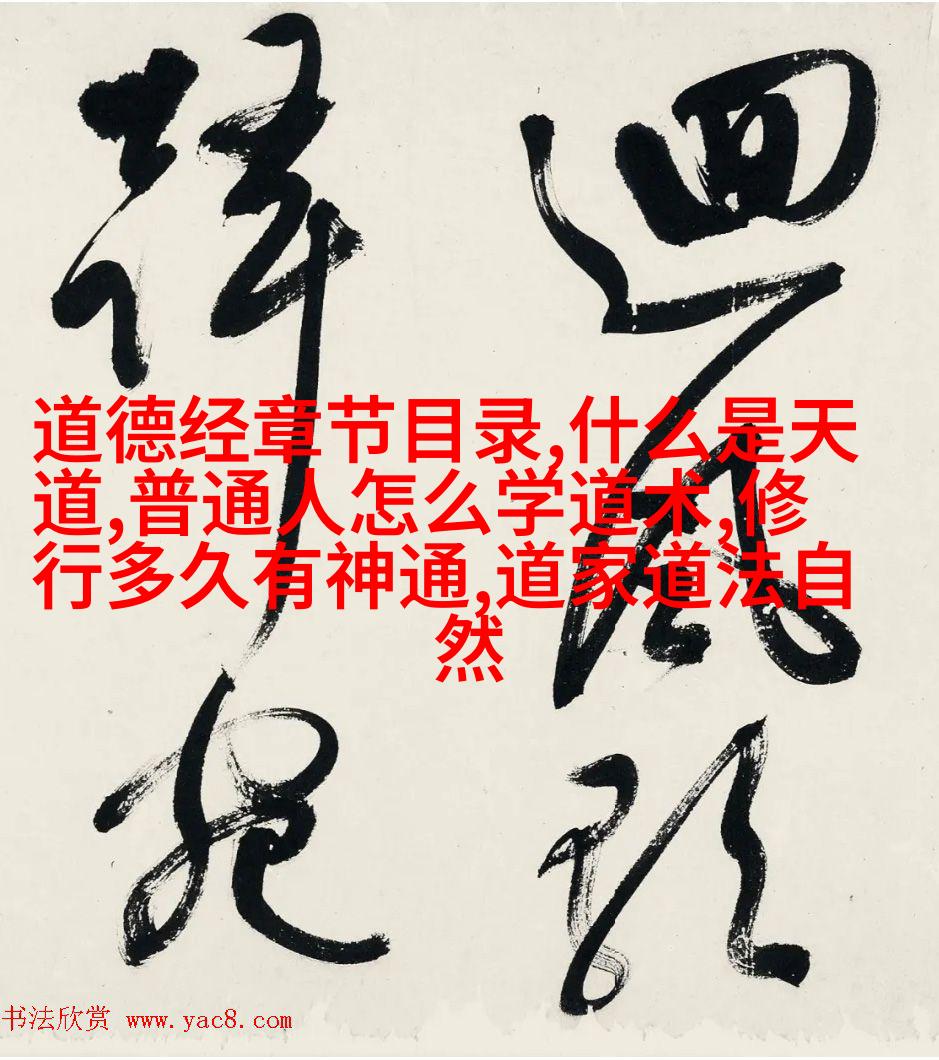 迴風
道德经章节目录,什么是天
道,普通人怎么学道术,修
行多久有神通,道家道法自
然
书法欣赏 www.yac8.com